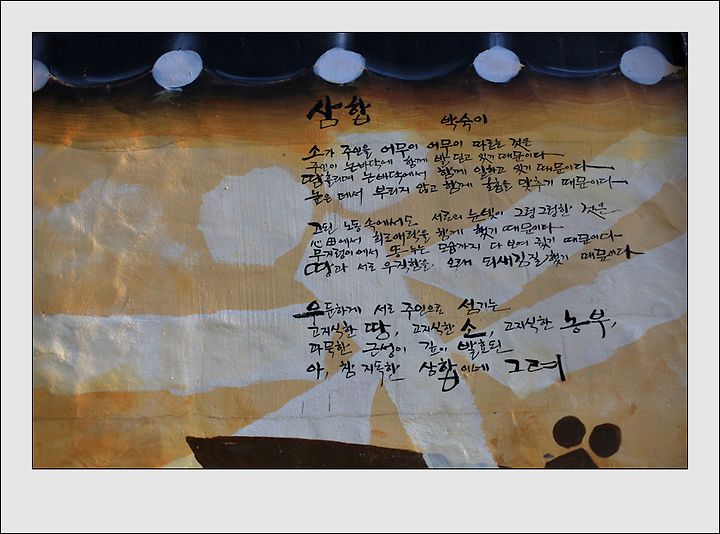 삼합 박숙이
소가 주인을 어무이 어무이 따르는 것은
주인이 논바닥에 함께 발 딛고 있기 때문이다
땀 흘리며 논바닥에서 함께 일하고 있기 때문이다
높은 데서 부리지 않고 함께 호흡을 맞추기 때문이다
고된 노동 속에서도 서로의 눈빛이 그렁그렁한 것은
心田에서 희로애락을 함께 했기 때문이다
무지렁이에서 똥 누는 모습까지 다 보여 줬기 때문이다
땅과 서로 우직함을 되새김질했기 때문이다
우둔하게 서로 주인으로 섬기는
고지식한 땅, 고지식한 소, 고지식한 농부,
과묵한 근성이 깊이 발효된
아, 참 지독한 삼합이네 그려